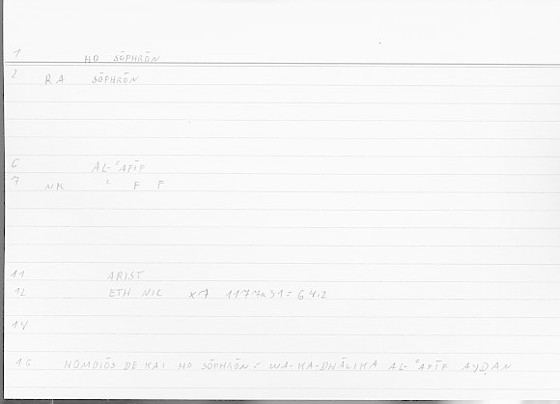 1 HO SŌPHRŌN
2 RA SŌPHRŌN
6 AL-ʿAFĪF
7 NK ʿ F F
11 ARIST
12 ETH NIC X7 1177a31 = 641.2
14
16 HOMOIŌS DE KAI HO SŌPHRŌN = WA-KA-DHĀLIKA AL-ʿAFĪF AYḌAN